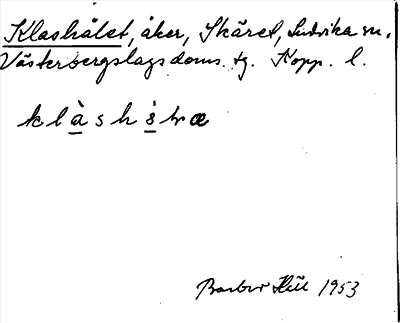 Klashålet, åker, Skäret, Ludvika sn,
Västerbergslags doms. tg. Kopp. l.
Barbro Hill 1953